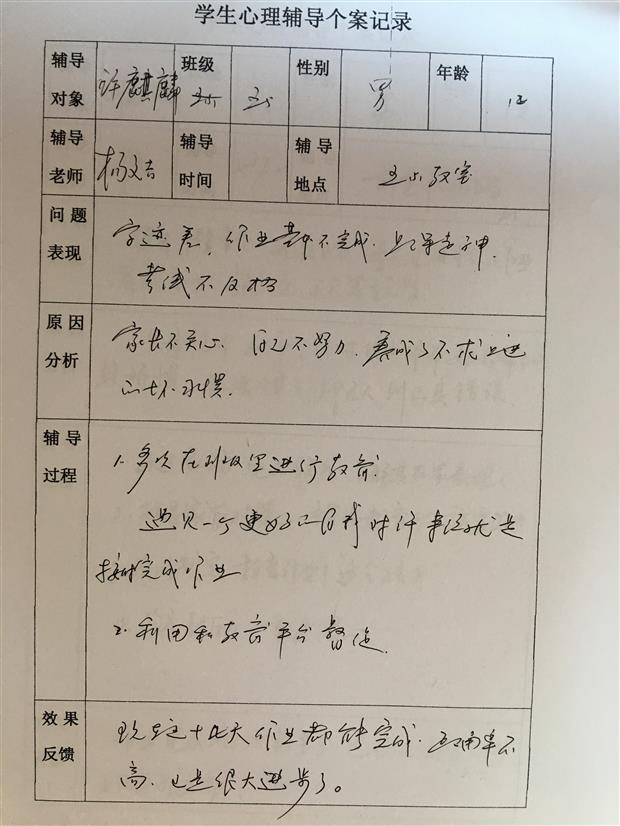 学生心理辅导个案记录
辅导对象 许麒麟 班级 性别 男 年龄 12
辅导老师 杨文吉 辅导时间 辅导地点 教室
问题表现 字迹差，作业基本不完成.上课走神.
考试不及格
原因分析 家长不关心.自己不努力.养成了不求上进
的坏习惯.
辅导过程 1.多次在班级里进行教育.
遇见一个更好的自我 就是
按时完成作业
2.利用和教育平台督促.
效果反馈 现在这十几天作业都能完成.正确率不
高.也是很大进步了。